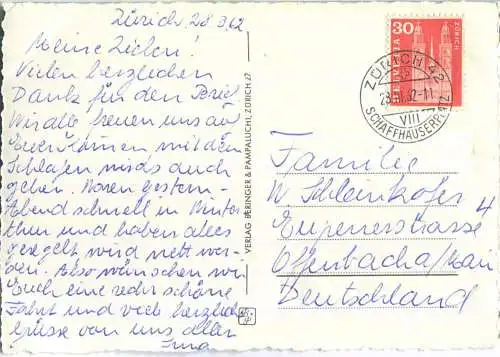 Zürich 28.3.62
Meine Lieben!
Vielen herzlichen
Dank für den Brief
Wir alle freuen uns auf
Euer Kommen mit dem
Schlafen wirds auch
gehen. Waren gestern-
Abend schnell in Winter
thur und haben alles
geregelt wird nett wer-
den. Also wünschen wir
Euch eine recht schöne
Fahrt und viele herzliche
Grüsse von uns allen
Irma
VERLAG BERINGER & PAMPALUCHI, ZÜRICH 27
30
ZÜRICH
HELVETIA
ZÜRICH 42
VIII
SCHAFFHAUSERPLATZ
Familie
W. Schleinkofer
Eupenerstrasse 4
Offenbach a/Main
Deutschland